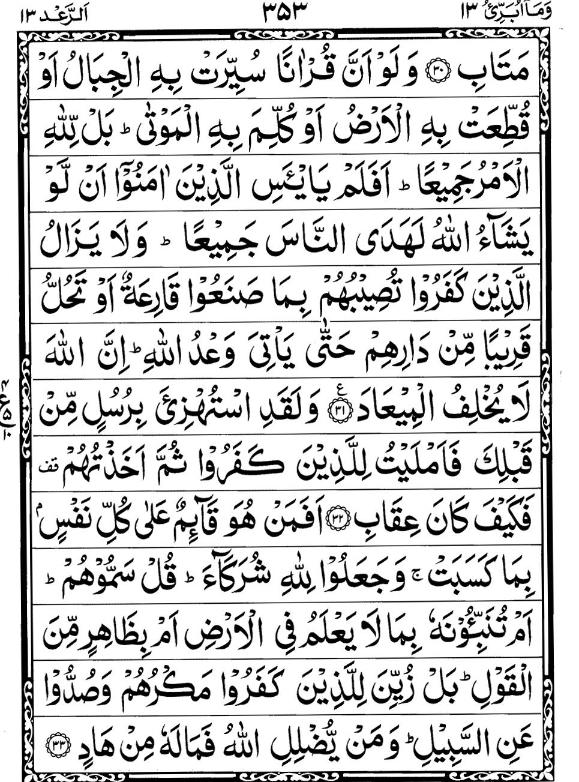 وَمَاۤ اُبَرِّئُ ١٣ ٣٥٣ اَلرَّعْد ١٣
مَتَابِ ﴿٣٠﴾ وَلَوْ اَنَّ قُرْاٰنًا سُيِّرَتْ بِهِ الْجِبَالُ اَوْ
قُطِّعَتْ بِهِ الْاَرْضُ اَوْ كُلِّمَ بِهِ الْمَوْتٰى ؕ بَلْ لِّلّٰهِ
الْاَمْرُ جَمِيْعًا ؕ اَفَلَمْ يَايْـَٔسِ الَّذِيْنَ اٰمَنُوْۤا اَنْ لَّوْ
يَشَآءُ اللّٰهُ لَهَدَى النَّاسَ جَمِيْعًا ؕ وَلَا يَزَالُ
الَّذِيْنَ كَفَرُوْا تُصِيْبُهُمْ بِمَا صَنَعُوْا قَارِعَةٌ اَوْ تَحُلُّ
قَرِيْبًا مِّنْ دَارِهِمْ حَتّٰى يَاْتِىَ وَعْدُ اللّٰهِ ؕ اِنَّ اللّٰهَ
لَا يُخْلِفُ الْمِيْعَادَ ﴿٣١﴾ ع وَلَقَدِ اسْتُهْزِئَ بِرُسُلٍ مِّنْ
قَبْلِكَ فَاَمْلَيْتُ لِلَّذِيْنَ كَفَرُوْا ثُمَّ اَخَذْتُهُمْ قف
فَكَيْفَ كَانَ عِقَابِ ﴿٣٢﴾ اَفَمَنْ هُوَ قَآئِمٌ عَلٰى كُلِّ نَفْسٍۢ
بِمَا كَسَبَتْ ۚ وَجَعَلُوْا لِلّٰهِ شُرَكَآءَ ؕ قُلْ سَمُّوْهُمْ ؕ
اَمْ تُنَبِّـُٔوْنَهٗ بِمَا لَا يَعْلَمُ فِى الْاَرْضِ اَمْ بِظَاهِرٍ مِّنَ
الْقَوْلِ ؕ بَلْ زُيِّنَ لِلَّذِيْنَ كَفَرُوْا مَكْرُهُمْ وَصُدُّوْا
عَنِ السَّبِيْلِ ؕ وَمَنْ يُّضْلِلِ اللّٰهُ فَمَا لَهٗ مِنْ هَادٍ ﴿٣٣﴾